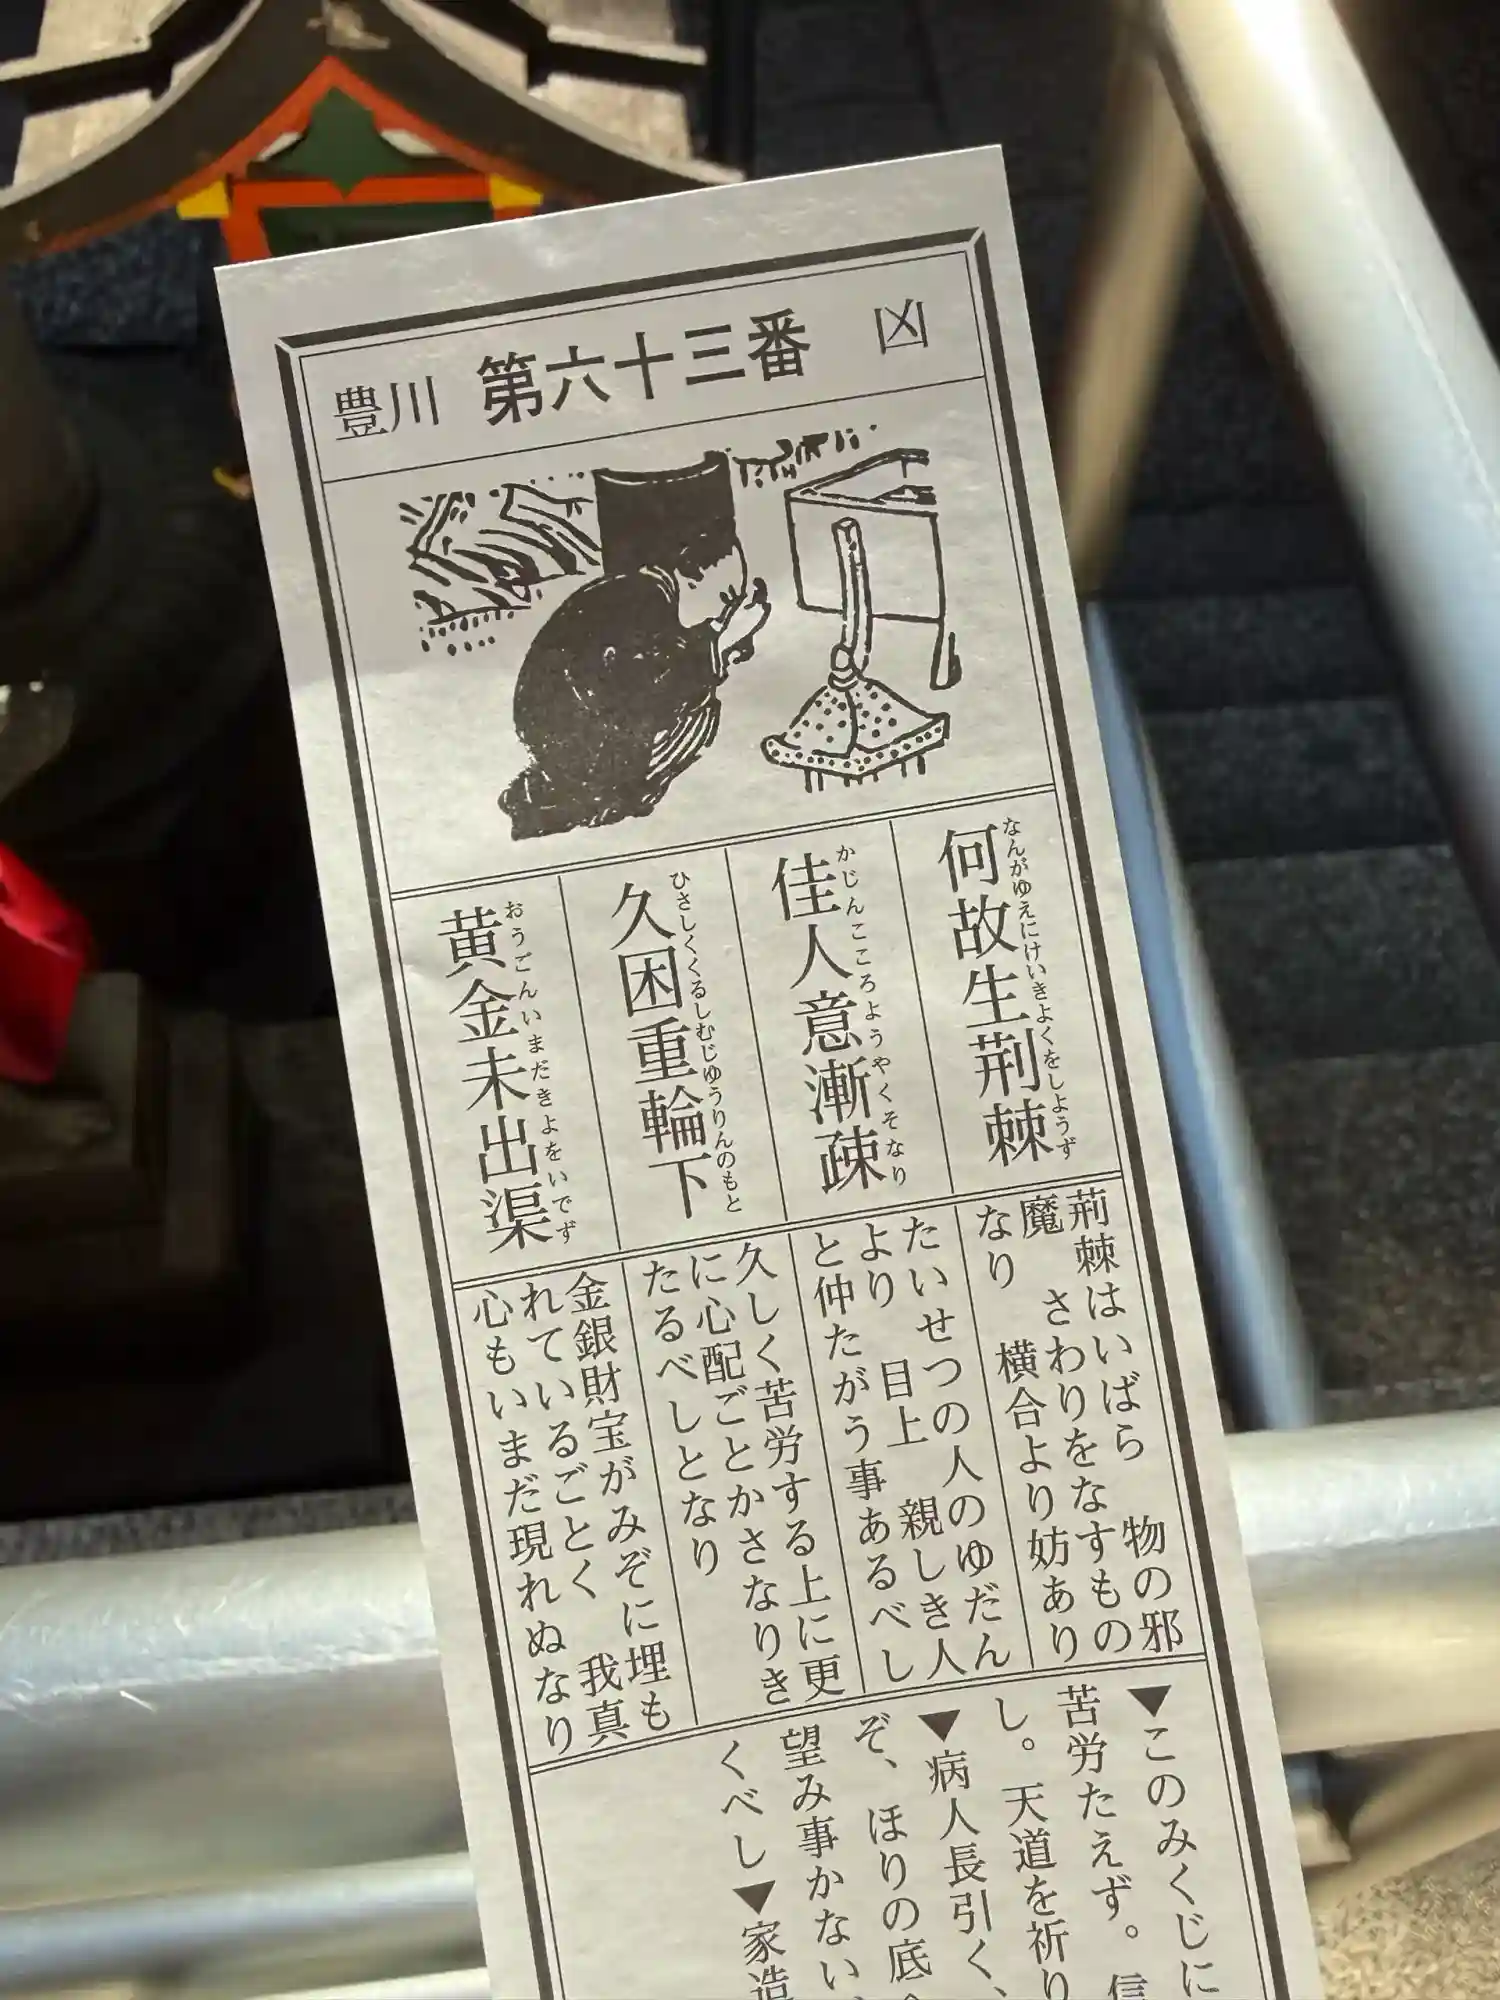 豊川 第六十三番 凶
何故生荊棘
なんがゆえにけいきよくをしようず
佳人意漸疎
かじんこころようやくそなり
久困重輪下
ひさしくくるしむじゆうりんのもと
黄金未出渠
おうごんいまだきよをいでず
荊棘はいばら 物の邪
魔 さわりをなすもの
なり 横合より妨あり
たいせつの人のゆだん
より 目上 親しき人
と仲たがう事あるべし
久しく苦労する上に更
に心配ごとかさなりき
たるべしとなり
金銀財宝がみぞに埋も
れているごとく 我真
心もいまだ現れぬなり
▼このみくじに
苦労たえず。信
し。天道を祈り
▼病人長引く、
ぞ、ほりの底
望み事かない
くべし▼家造